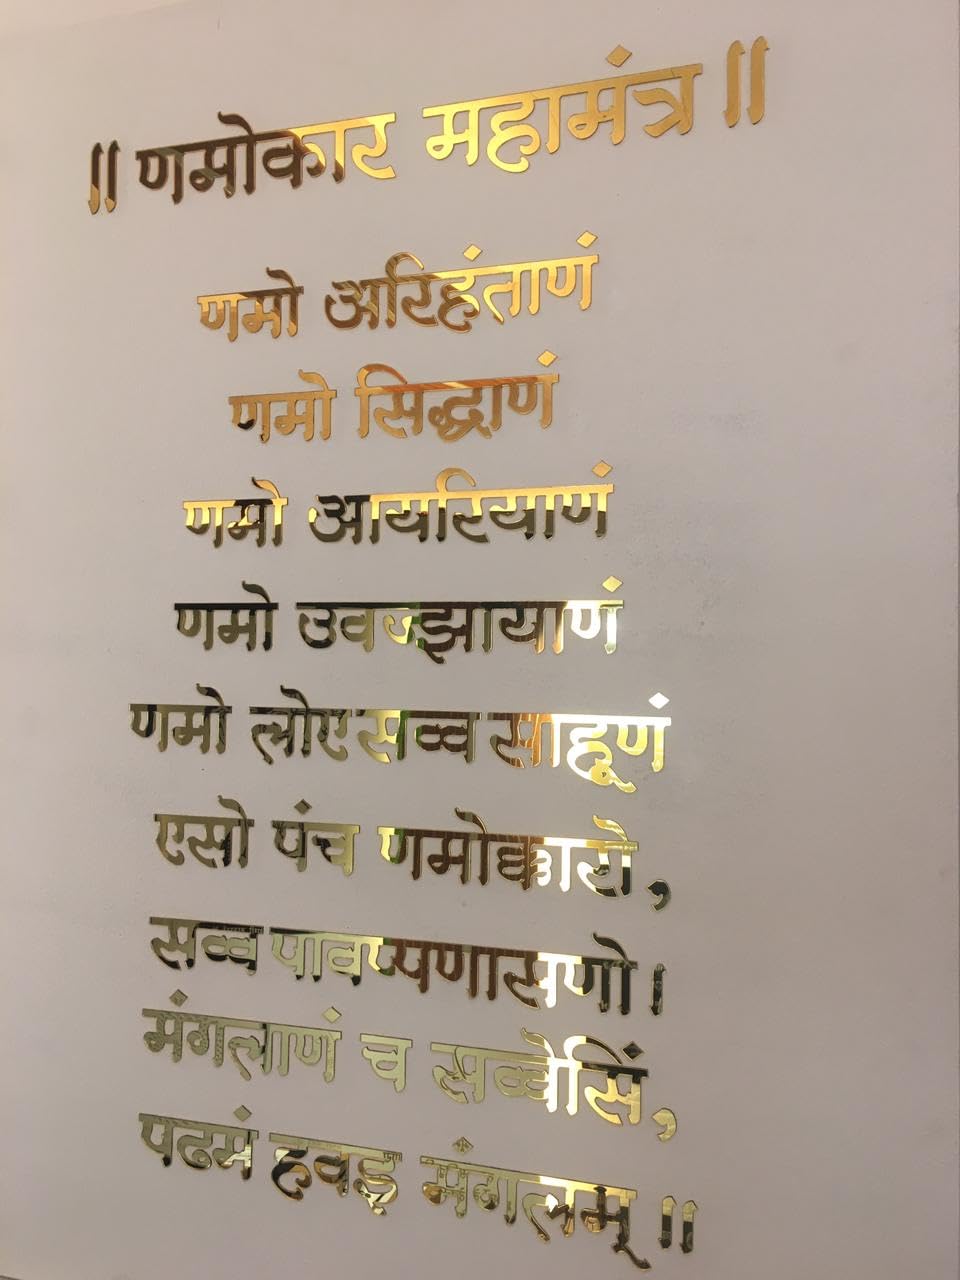 ॥ णमोकार महामंत्र ॥
णमो अरिहंताणं
णमो सिद्धाणं
णमो आयरियाणं
णमो उवज्झायाणं
णमो लोए सव्व साहूणं
एसो पंच णमोक्कारो,
सव्व पावप्पणासणो।
मंगलाणं च सव्वेसिं,
पढमं हवइ मंगलम् ॥